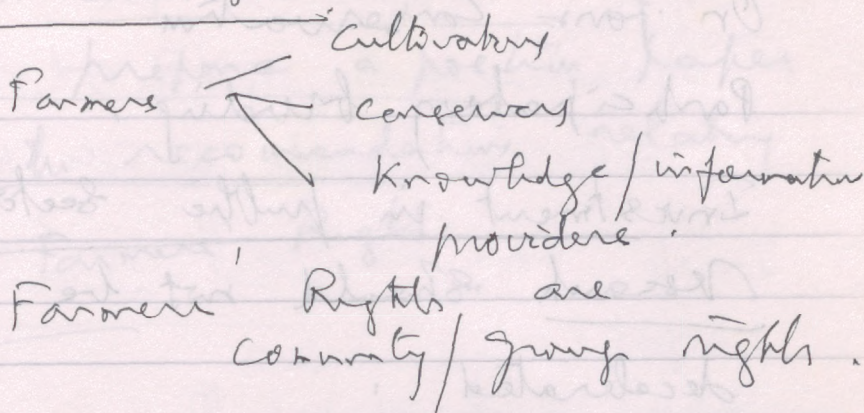 Cultivators
Farmers
Conservers
Knowledge/information
providers.
Farmers' Rights are
Community/group rights.